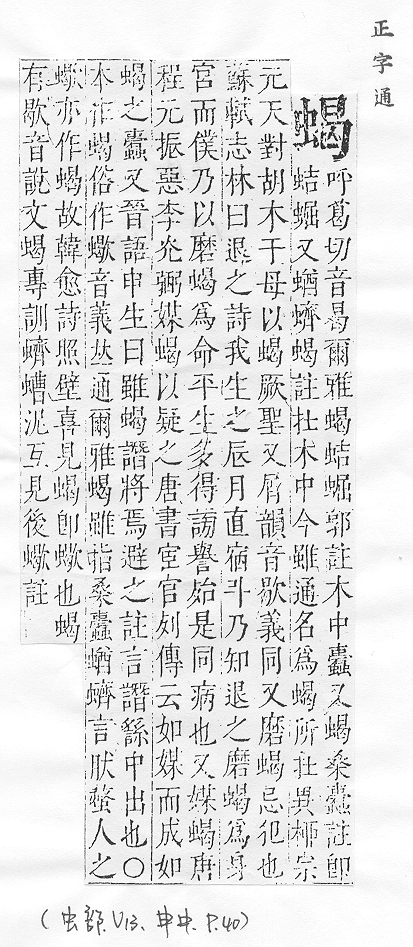 正字通
蝎
呼葛切音曷爾雅蝎蛣𧌑郭註木中蠹又蝎桑蠹註卽
蛣𧌑又蝤蠐蝎註在木中今雖通名為蝎所在異柳宗
元天對胡木于母以蝎厥聖又屑韻音歇義同又磨蝎忌犯也
蘇軾志林曰退之詩我生之辰月直宿斗乃知退之磨蝎爲身
宮而僕乃以磨蝎爲命平生多得謗譽始是同病也又媒蝎唐
程元振惡李光弼媒蝎以疑之唐書宦官列傳云如媒而成如
蝎之蠹又晉語申生曰雖蝎譖將焉避之註言譖繇中出也〇
本作蝎俗作蠍音義𠀤通爾雅蝎雖指桑蠹蝤蠐言肰螫人之
蠍亦作蝎故韓愈詩照壁喜見蝎卽蠍也蝎
有歇音說文蝎專訓蠐螬泥互見後蠍註
(虫部.V13、申中.P.40)